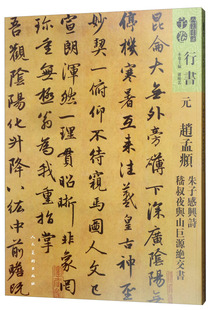 行書
元
趙孟頫
朱子感興詩
嵇叔夜與山巨源絕交書
昆侖大無外旁礴下深廣陰陽無
停機寒暑互來往羲皇古神聖
妙契一俯仰不待窺馬圖人文已
宣朗渾然一理貫昭晰非象罔
珍重無極翁為我重指掌
吾觀陰陽化升降八紘中前瞻既
人民美術出版社